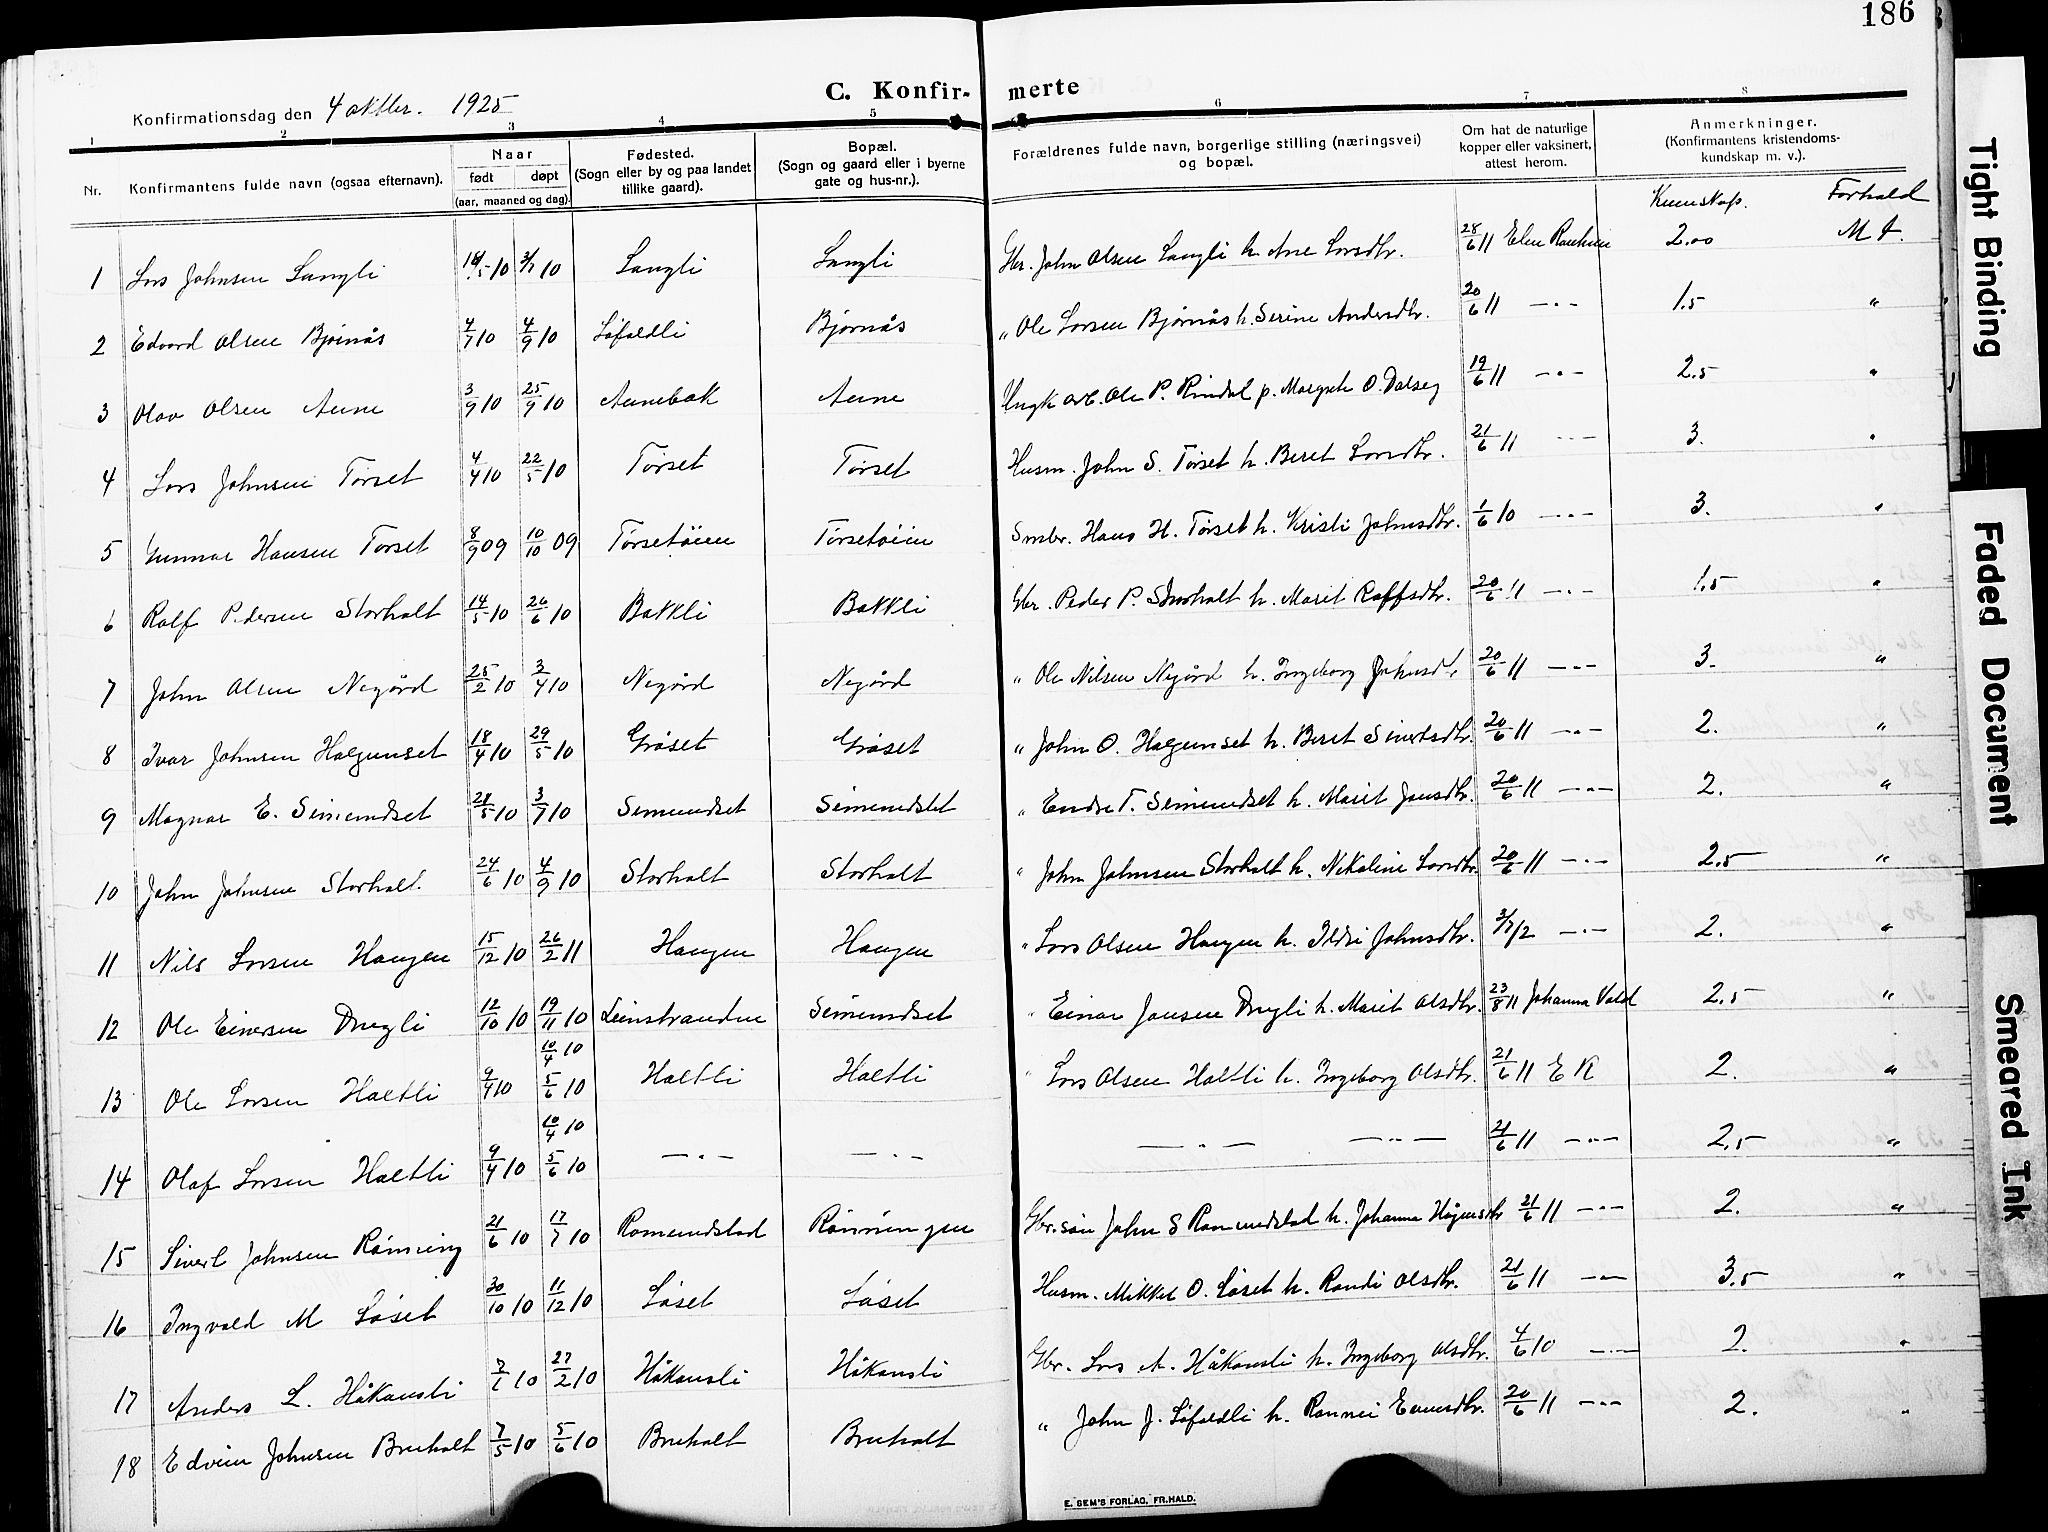 186
C. Konfirmerte
Konfirmationsdag den 4 oktbr. 1925
1 2 3 4 5 6 7 8
Nr. Konfirmantens fulde navn (ogsaa efternavn). Naar født døpt (aar, maaned og dag). Fødested. (Sogn eller by og paa landet tillike gaard). Bopæl. (Sogn og gaard eller i byerne gate og hus-nr.). Forældrenes fulde navn, borgerlige stilling (næringsvei) og bopæl. Om hat de naturlige kopper eller vaksinert, attest herom. Anmerkninger. (Konfirmantens kristendomskundskap m. v.).
Kunnskap. Forhald
1 Lars Johnsen Langli /5 10 3/7 10 Langli Langli Gbr. John Olsen Langli h. Ane Larsdtr. 28/6 11 2.00 M t.
2 Edvard Olsen Bjørnås 4/7 10 4/9 10 Løfaldli Bjørnås " Ole Larsen Bjørnås h. Serine Andersdtr. 20/6 11 -"- 1.5 "
3 Olav Olsen Aune 3/9 10 25/9 10 Aunebak Aune Ungk. arb. Ole P. Rindal p. Margrete O. Dalseg 19/6 11 -"- 2.5 "
4 Lars Johnsen Tørset 4/4 10 22/5 10 Tørset Tørset Husm. John S. Tørset h. Beret Larsdtr. 21/6 11 -"- 3. "
5 Gunnar Hansen Tørset 8/9 09 10/10 09 Tørsetøien Tørsetøien Smbr. Hans H. Tørset h. Kristi Johnsdtr. 1/6 10 -"- 3. "
6 Rolf Pedersen Storholt 14/5 10 26/6 10 Bakkli Bakkli Gbr. Peder P. Storholt h. Marit Rolfsdtr. 20/6 11 -"- 1.5 "
7 John Olsen Negård 25/2 10 3/4 10 Negård Negård " Ole Nilsen Negård h. Ingeborg Johnsdtr 20/6 11 -"- 3. "
8 Ivar Johnsen Halgunset 18/4 10 29/5 10 Grøset Grøset " John O. Halgunset h. Beret Sivertsdtr. 20/6 11 -"- 2. "
9 Magnar E. Simundset 28/5 10 3/7 10 Simundset Simundset " Endre T. Simundset h. Marit Jonsdtr. 20/6 11 -"- 2. "
10 John Johnsen Storholt. 24/6 10 4/9 10 Storholt Storholt " John Johnsen Storholt h. Nikoline Larsdtr. 20/6 11 -"- 2.5 "
11 Nils Larsen Haugen 15/12 10 26/2 11 Haugen Haugen " Lars Olsen Haugen h. Ildri Johnsdtr. 3/7 12 -"- 2. "
12 Ole Einarsen Drugli 12/10 10 19/11 10 Leinstranden Simundset " Einar Jonsen Drugli h. Marit Olsdtr. 23/8 11 Johanna Vold 2.5 "
13 Ole Larsen Holtli 9/4 10 10/4 10 5/6 10 Holtli Holtli " Lars Olsen Holtli h. Ingeborg Olsdtr. 21/6 11 E R 2. "
14 Olaf Larsen Holtli 9/4 10 10/4 10 5/6 10 -"- -"- -"- -"- 21/6 11 -"- 2.5 "
15 Sivert Johnsen Rønning 21/6 10 17/7 10 Romundstad Rønningen Gbr.søn John S Romundstad h. Johanna 21/6 11 -"- 2. "
16 Ingvald M Løset 30/10 10 11/12 10 Løset Løset Husm. Mikkel O. Løset h. Randi Olsdtr. 21/6 11 -"- 3.5 "
17 Anders L. Håkansli 7/1 10 27/2 10 Håkansli Håkansli Gbr. Lars A. Håkansli h. Ingeborg Olsdtr. 4/6 10 -"- 2. "
18 Edvin Johnsen Bruholt 7/5 10 5/6 10 Bruholt Bruholt " John J. Løfaldli h. Rannei Evensdtr. 20/6 11 -"- 2. "
E. SEM'S FORLAG, FR.HALD.
Tight Binding
Faded Document
Smeared Ink